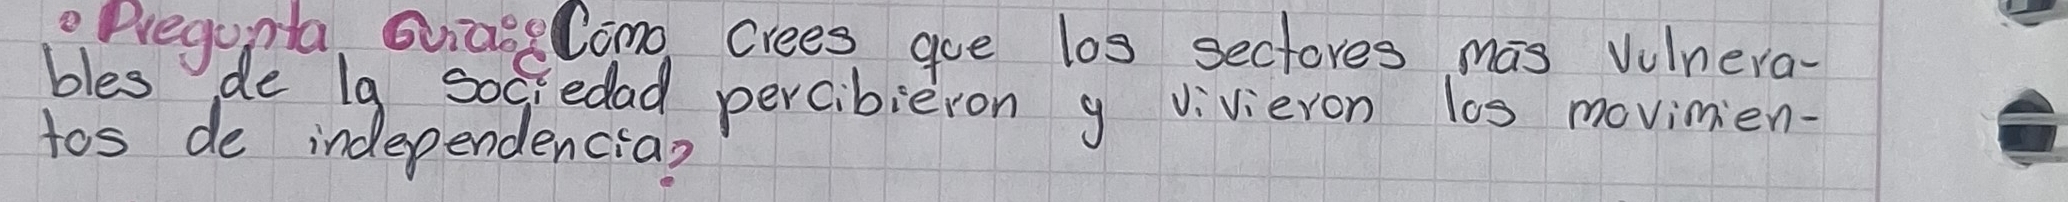 • Pregunta Guia: ¿Cómo crees que los sectores más vulnera-
bles de la sociedad percibieron y vivieron los movimien-
tos de independencia?